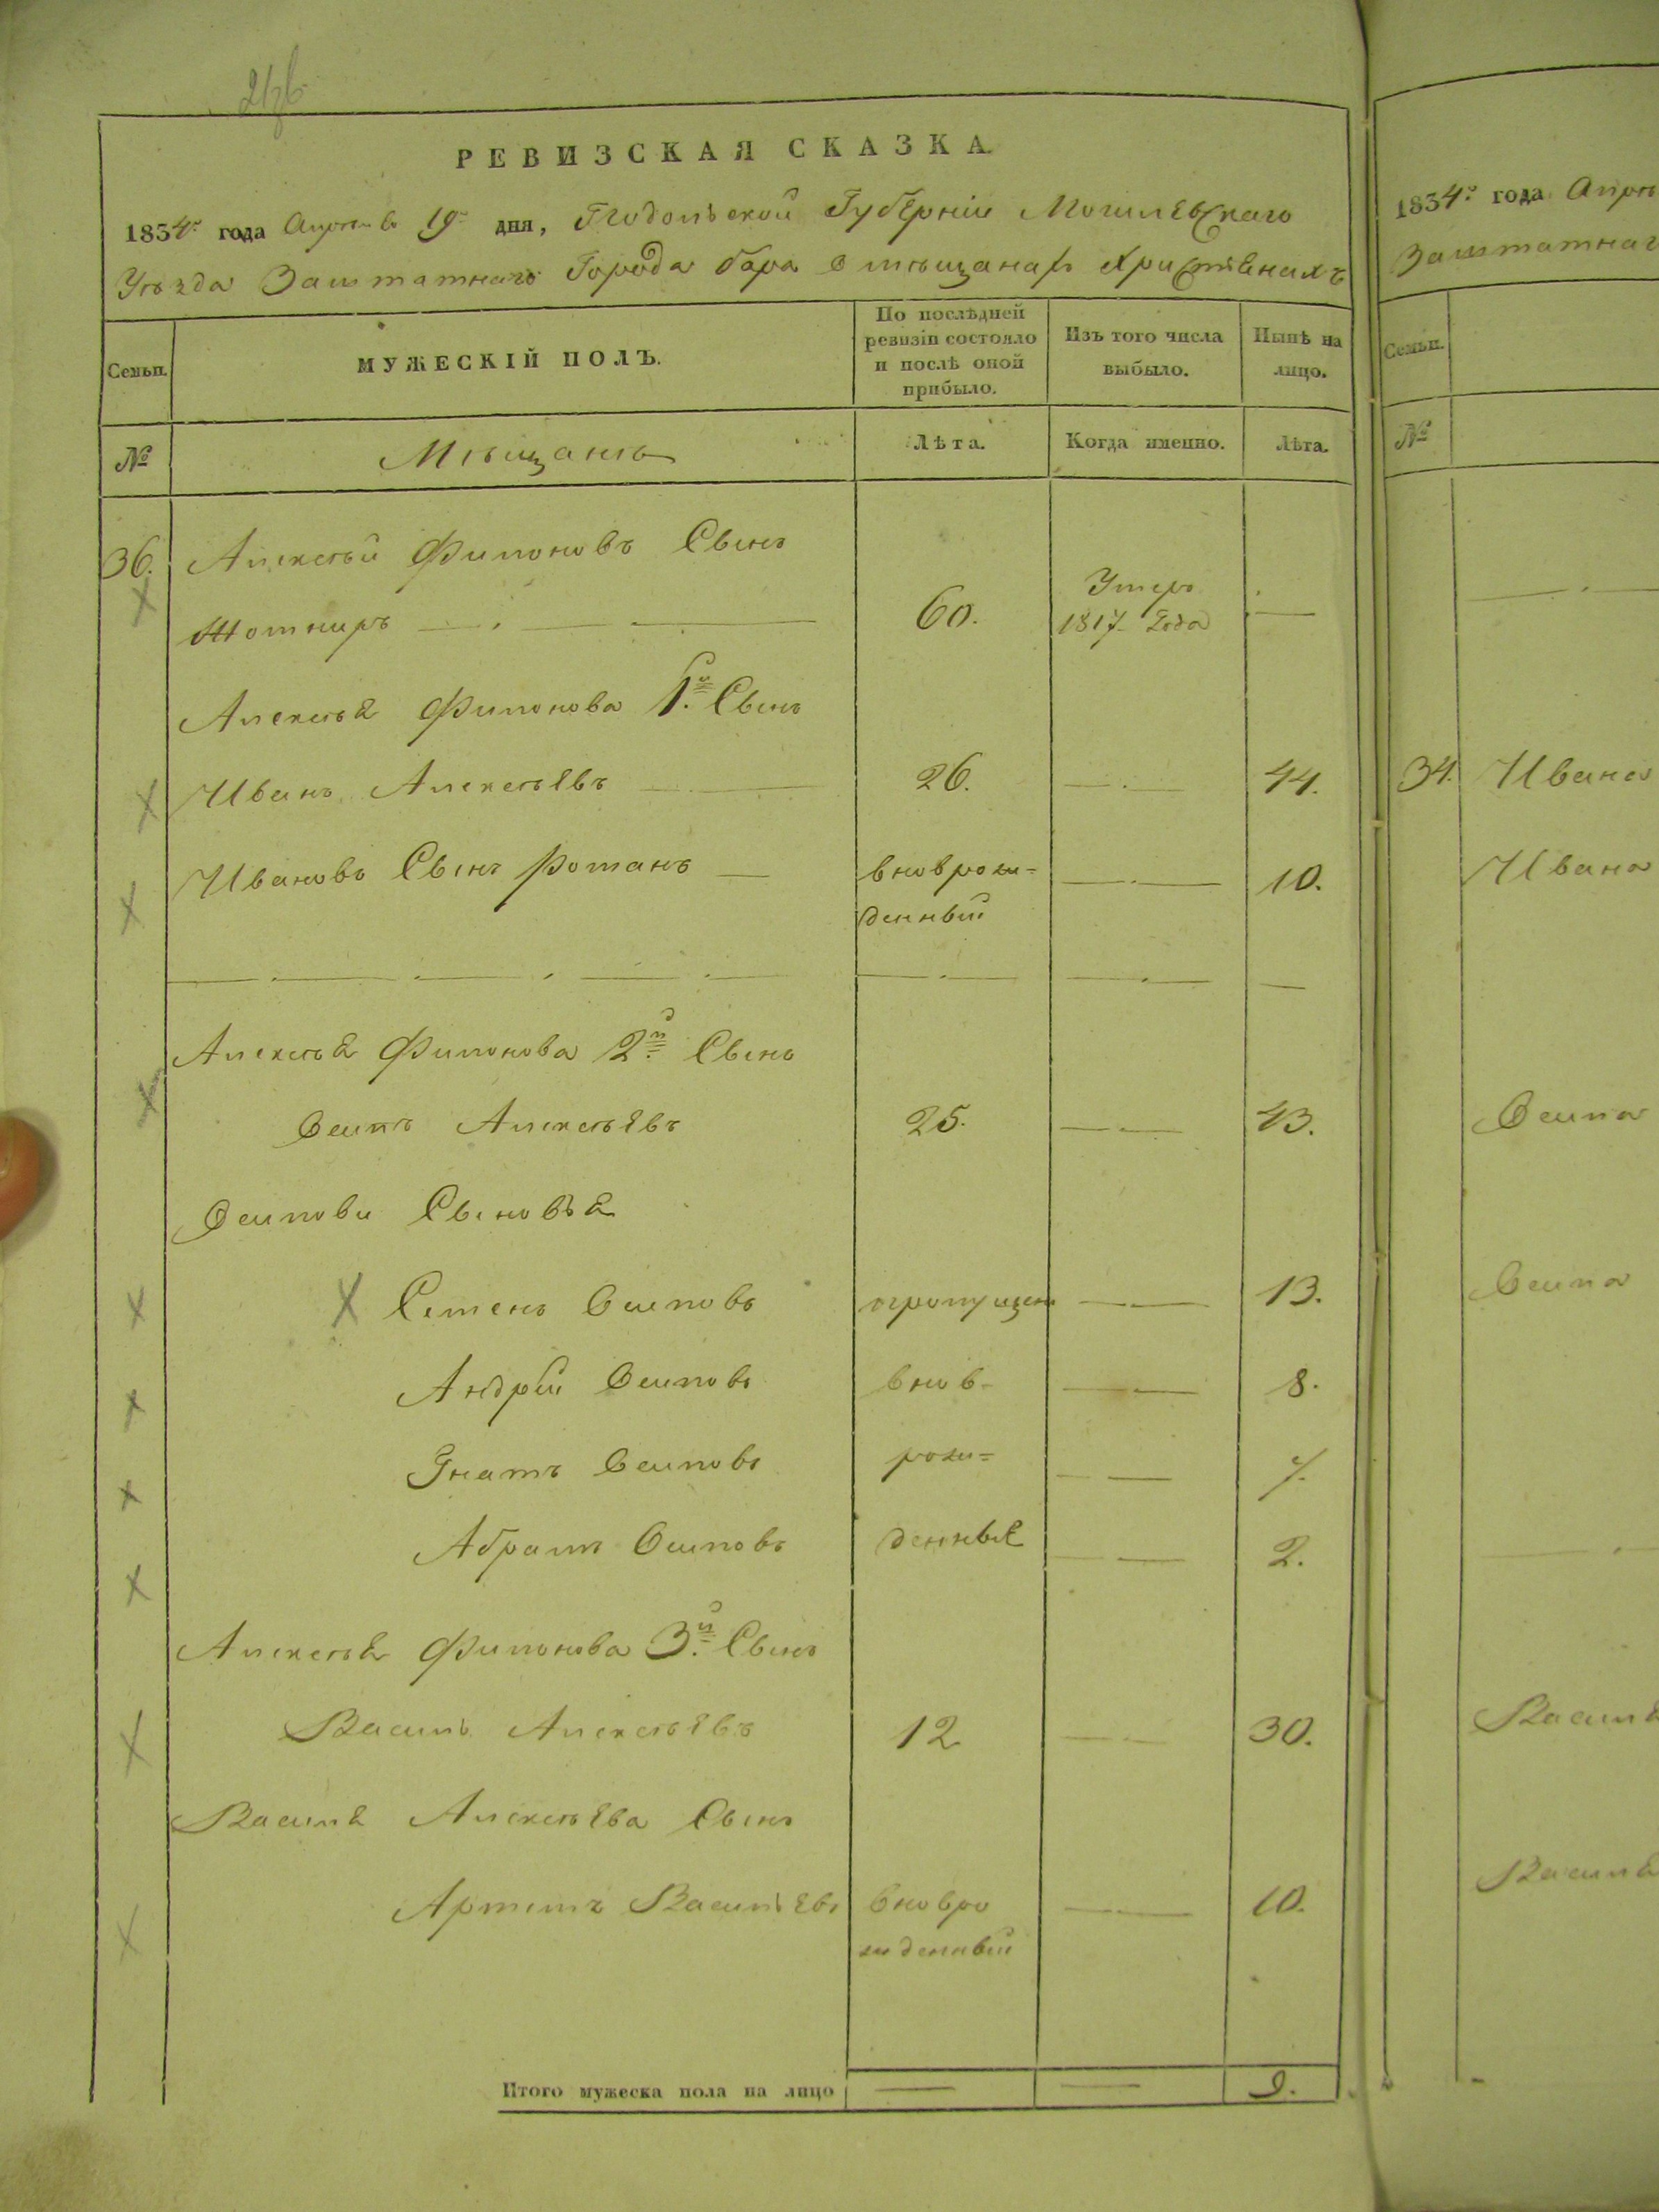 РЕВИЗСКАЯ СКАЗКА.
1834го года Апреля 19го дня, Подольской Губерніи Могилевскаго
Уѣзда Заштатнаго Города Бара о мѣщанахъ Христіянахъ
Семьи.
МУЖЕСКІЙ ПОЛЪ.
По послѣдней ревизіи состояло и послѣ оной прибыло.
Изъ того числа выбыло.
Нынѣ на лицо.
№
Мѣщанъ
Лѣта.
Когда именно.
Лѣта.
36. Алексѣй Филоновъ Сынъ
60. Умеръ 1817 Года —
Алексѣя Филонова 1й Сынъ
Иванъ Алексѣевъ — 26. — 44.
Ивановъ Сынъ Романъ — вновро́ж= — 10.
денный
Алексѣя Филонова 2й Сынъ
Осипъ Алексѣевъ 25. — 43.
Осиповы Сыновья
Семенъ Осиповъ пропущен — 13.
Андрей Осиповъ внов- — 8.
Гнатъ Осиповъ рож= — 7.
Абрамъ Осиповъ денные — 2.
Алексѣя Филонова 3й Сынъ
Василь Алексѣевъ 12 — 30.
Василя Алексѣева Сынъ
Артемъ Васильевъ вновро — 10.
жденный
Итого мужеска пола на лицо — — 9.
1834го года
Заштатнаг
Семьи.
№
34. Ивана
Ивана
Осипа
Осипа
Василя
Василя